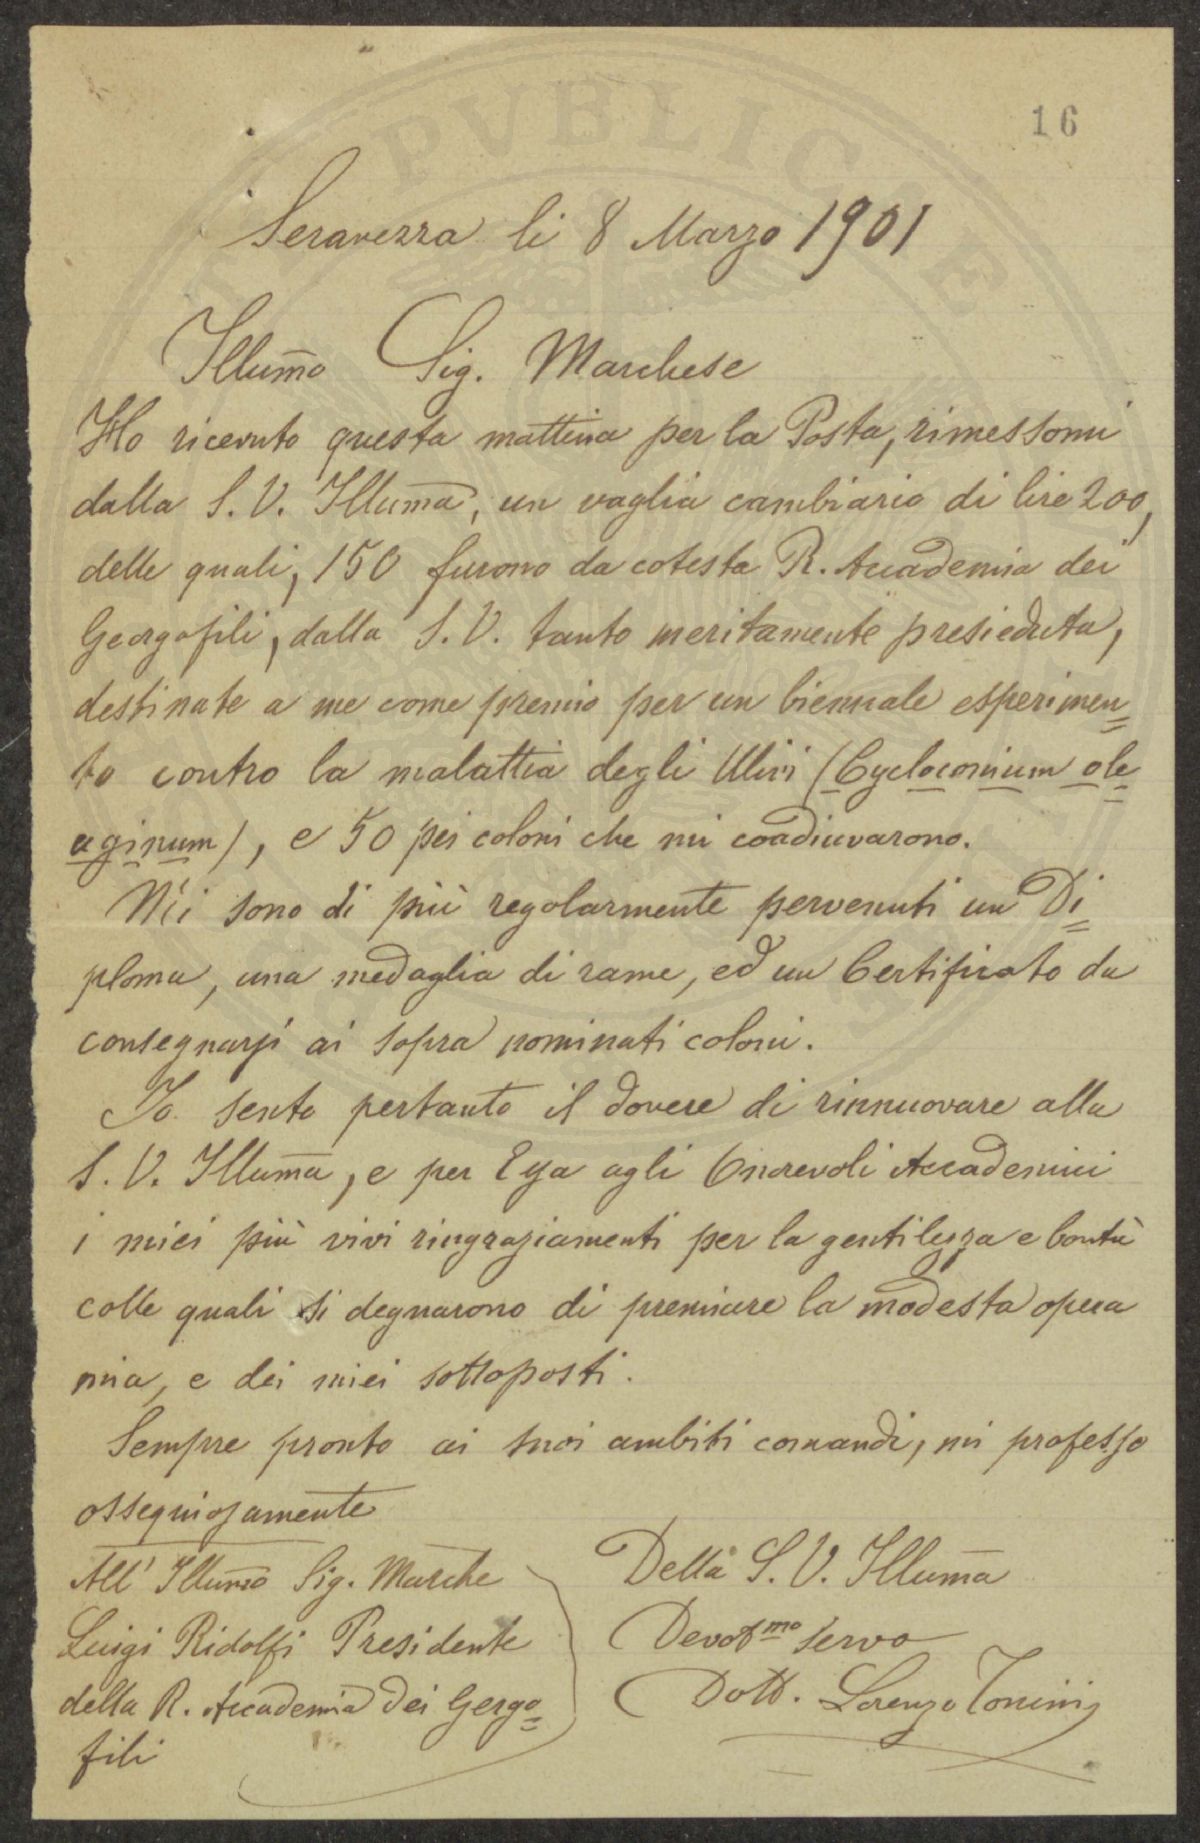 16
Seravezza li 8 Marzo 1901
Illum̅o Sig. Marchese
Ho ricevuto questa mattina per la Posta, rimessomi
dalla S. V. Illum̅a, un vaglia cambiario di lire 200,
delle quali, 150 furono da cotesta R. Accademia dei
Georgofili, dalla S. V. tanto meritamente presieduta,
destinate a me come premio per un biennale esperimen=
to contro la malattia degli Ulivi (Cycloconium ole=
aginum), e 50 pei coloni che mi coadiuvarono.
Mi sono di più regolarmente pervenuti un Di=
ploma, una medaglia di rame, ed un Certificato da
consegnarsi ai sopra nominati coloni.
Io sento pertanto il dovere di rinnuovare alla
S. V. Illum̅a, e per Essa agli Onorevoli Accademici
i miei più vivi ringraziamenti per la gentilezza e bontà
colle quali si degnarono di premiare la modesta opera
mia, e dei miei sottoposti.
Sempre pronto ai suoi ambiti comandi, mi professo
ossequiosamente
Della S. V. Illum̅a
Devot^mo servo
Dott. Lorenzo Tonini
All' Illum̅o Sig. Marche
Luigi Ridolfi Presidente
della R. Accademia dei Gergo=
fili